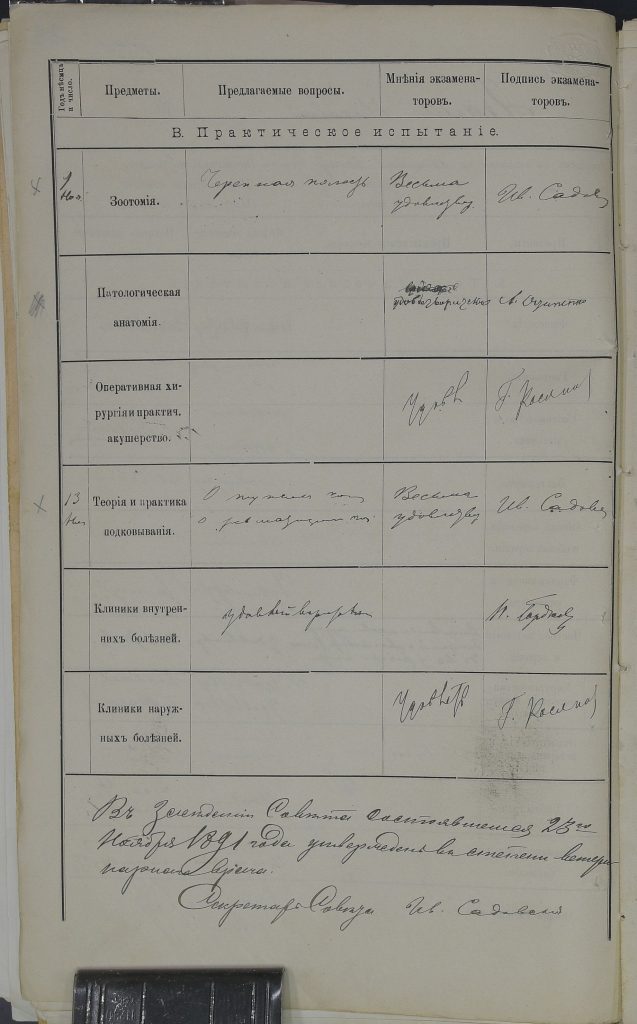 Годъ, мѣсяцъ и число.
Предметы.
Предлагаемые вопросы.
Мнѣнія экзамена-
торовъ.
Подпись экзамена-
торовъ.
В. Практическое испытаніе.
1
Зоотомія.
Черепная полость
Весьма
удовлетвор.
Ив. Садовск
Патологическая
анатомія.
удовлетворительно
Оперативная хи-
рургія и практич.
акушерство.
Удовл
13
Теорія и практика
подковыванія.
О
Весьма
удовлетвор
Ив. Садовск
Клиники внутрен-
нихъ болѣзней.
удовлетворительно
Клиники наруж-
ныхъ болѣзней.
Удовлетв
Въ Засѣданіи Совѣта состоявшемся 23го
Ноября 1891 года утвержденъ въ степени ветери-
нарнаго врача.
Секретарь Совѣта Ив. Садовскій